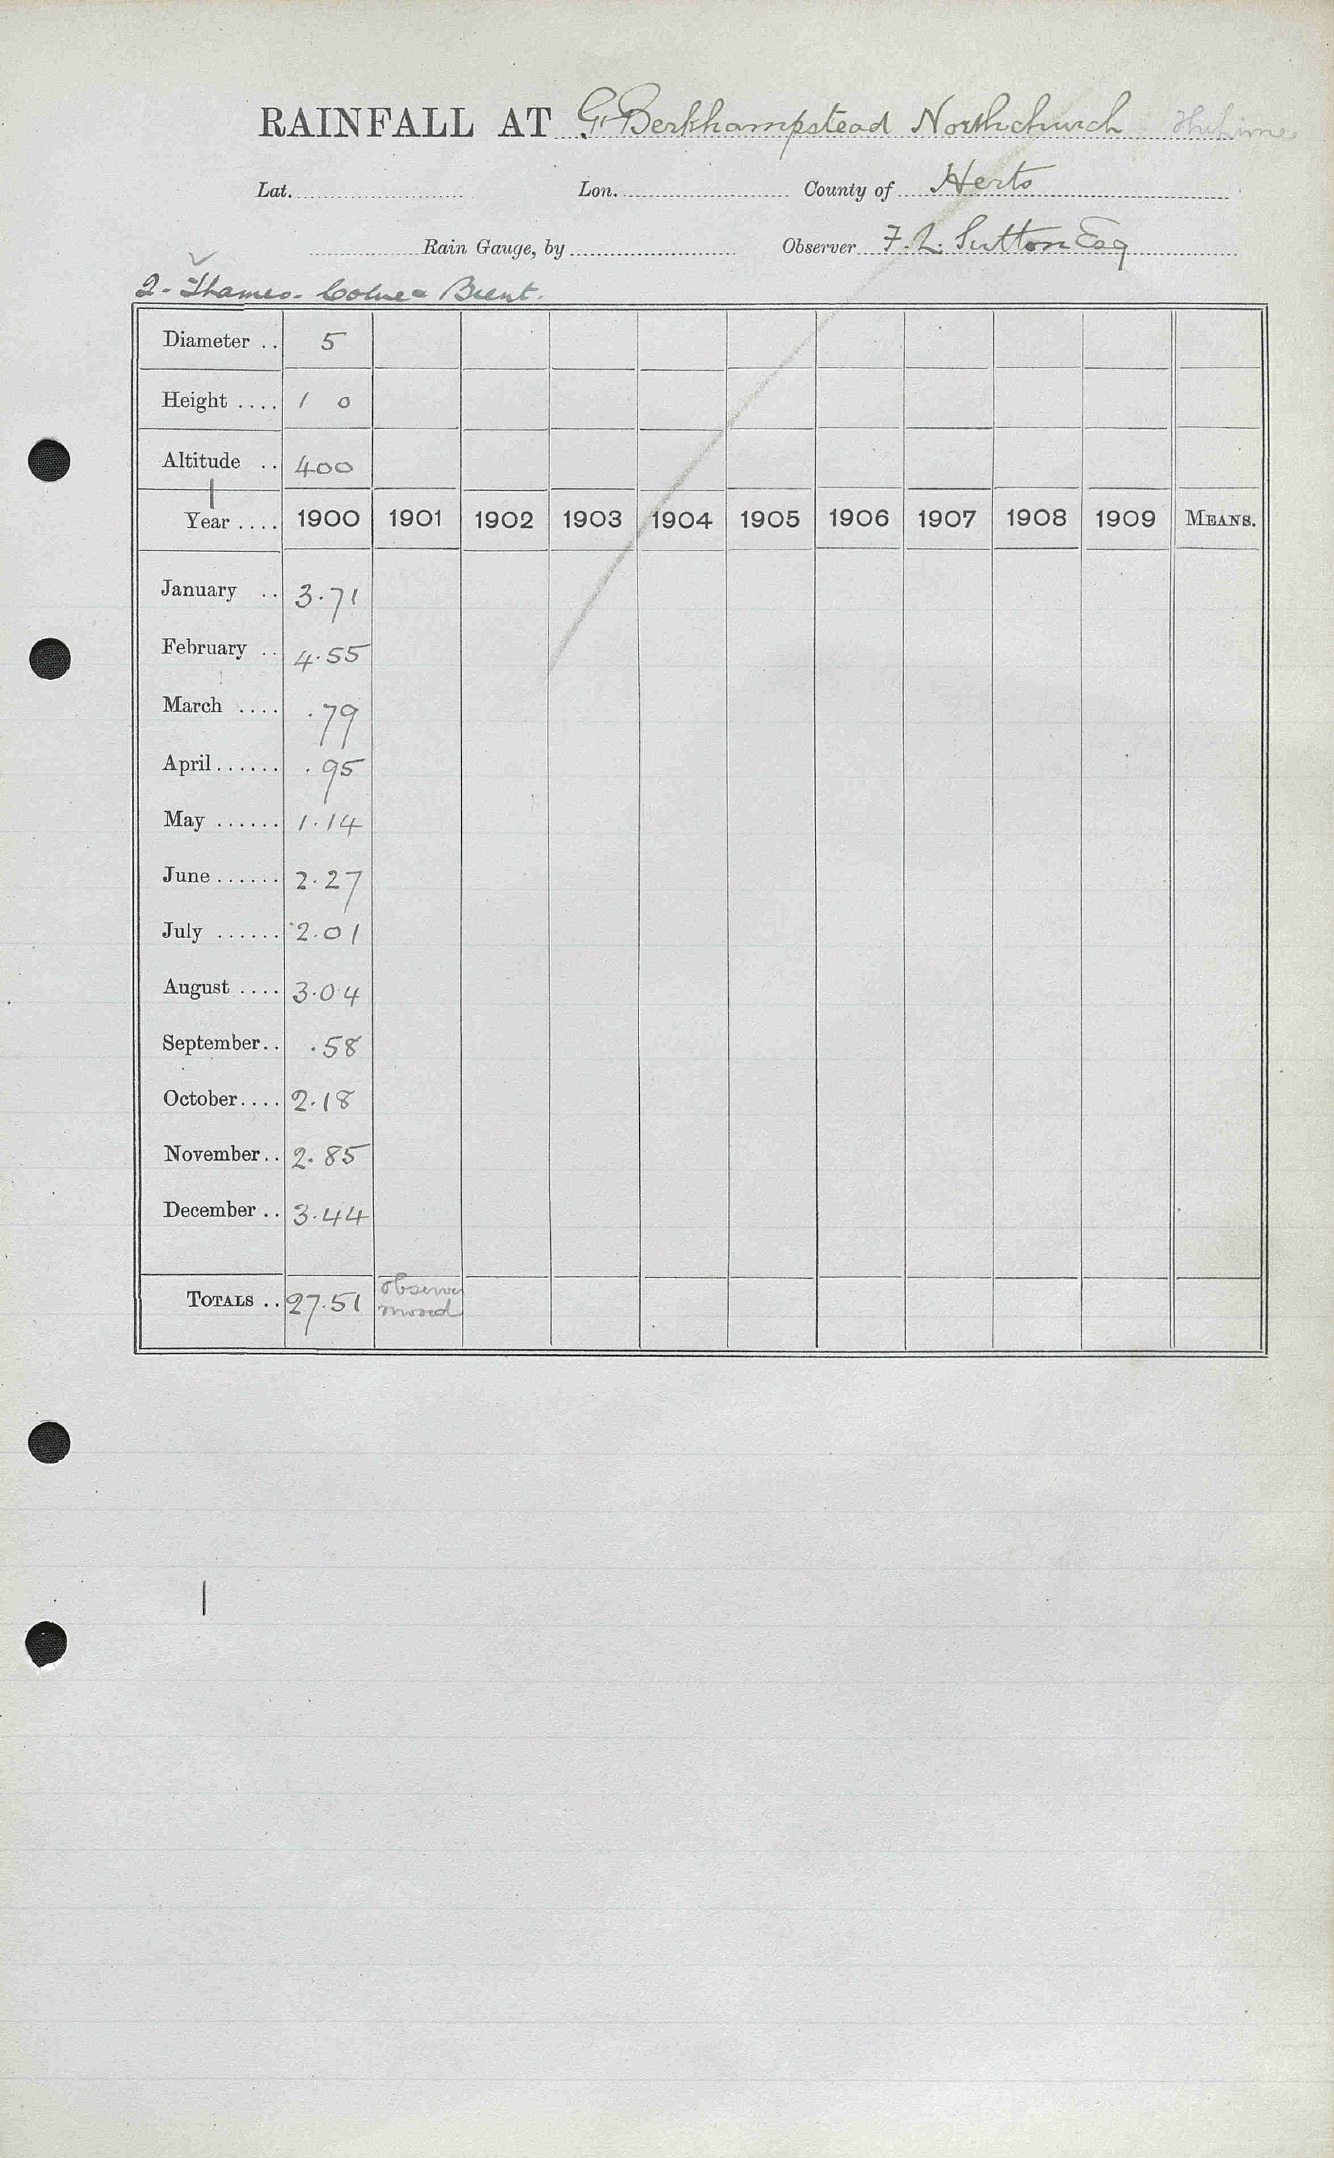 RAINFALL AT Gt Berkhampstead Northchurch
Lat. Lon. County of Herts
Rain Gauge, by Observer F. L. Sutton Esq
2 - Thames - Colne & Brent.
Diameter .. 5
Height .... 1 0
Altitude .. 400
Year .... 1900 1901 1902 1903 1904 1905 1906 1907 1908 1909 MEANS.
January .. 3.71
February .. 4.55
March .... .79
April...... .95
May ...... 1.14
June ...... 2.27
July ...... 2.01
August .... 3.04
September.. .58
October.... 2.18
November.. 2.85
December .. 3.44
TOTALS .. 27.51 observer moved